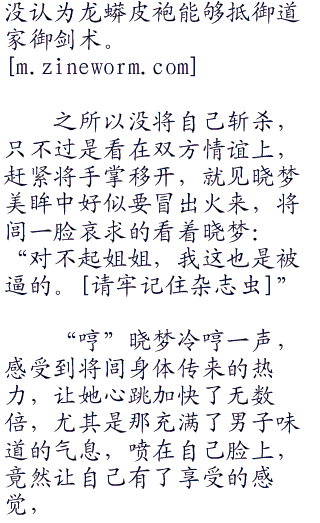 没认为龙蟒皮袍能够抵御道
家御剑术。
[m.zineworm.com]
之所以没将自己斩杀，
只不过是看在双方情谊上，
赶紧将手掌移开，就见晓梦
美眸中好似要冒出火来，将
闾一脸哀求的看着晓梦：
“对不起姐姐，我这也是被
逼的。[请牢记住杂志虫]”
“哼”晓梦冷哼一声，
感受到将闾身体传来的热
力，让她心跳加快了无数
倍，尤其是那充满了男子味
道的气息，喷在自己脸上，
竟然让自己有了享受的感
觉，